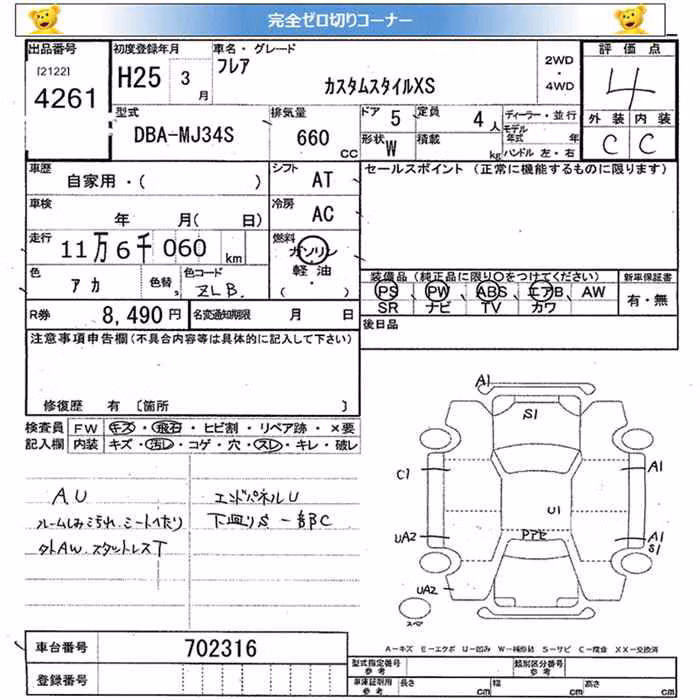 完全ゼロ切りコーナー
出品番号
[2122]
4261
初度登録年月
H25 3月
車名・グレード
フレア
カスタムスタイルXS
2WD
・
4WD
評価点
4
外装 内装
C C
型式
DBA-MJ34S
排気量
660
CC
ドア 5
定員 4人
形状 W
積載 kg
ディーラー・並行
モデル年式 年
ハンドル 左・右
車歴
自家用・( )
シフト AT
セールスポイント (正常に機能するものに限ります)
車検
年 月( 日)
冷房 AC
走行
11万6千060 km
燃料
ガソリン
軽油
( )
色
アカ
色替
色コード
ZLB.
装備品 (純正品に限り〇をつけてください)
PS PW ABS エアB AW
SR ナビ TV カワ
新車保証書
有・無
R券 8,490円
名変通知期限 月 日
後日品
注意事項申告欄(不具合内容等は具体的に記入して下さい)
修復歴 有 〔箇所 〕
検査員 FW キズ・飛石・ヒビ割・リペア跡・×要
記入欄 内装 キズ・汚レ・コゲ・穴・スレ・キレ・破レ
AU
ルームしみ汚れ.シートへたり
タトAW.スタットレスT
エンドパネルU
下廻りS 一部C
A1
S1
C1
A1
U1
UA2
A1
S1
Pアセ
UA2
スペア
A-キズ E-エクボ U-凹み W-補修跡 S-サビ C-腐食 XX-交換済
車台番号 702316
登録番号
型式指定番号
参考
類別区分番号
参考
車庫証明用
参考
長さ cm 幅 cm 高さ cm